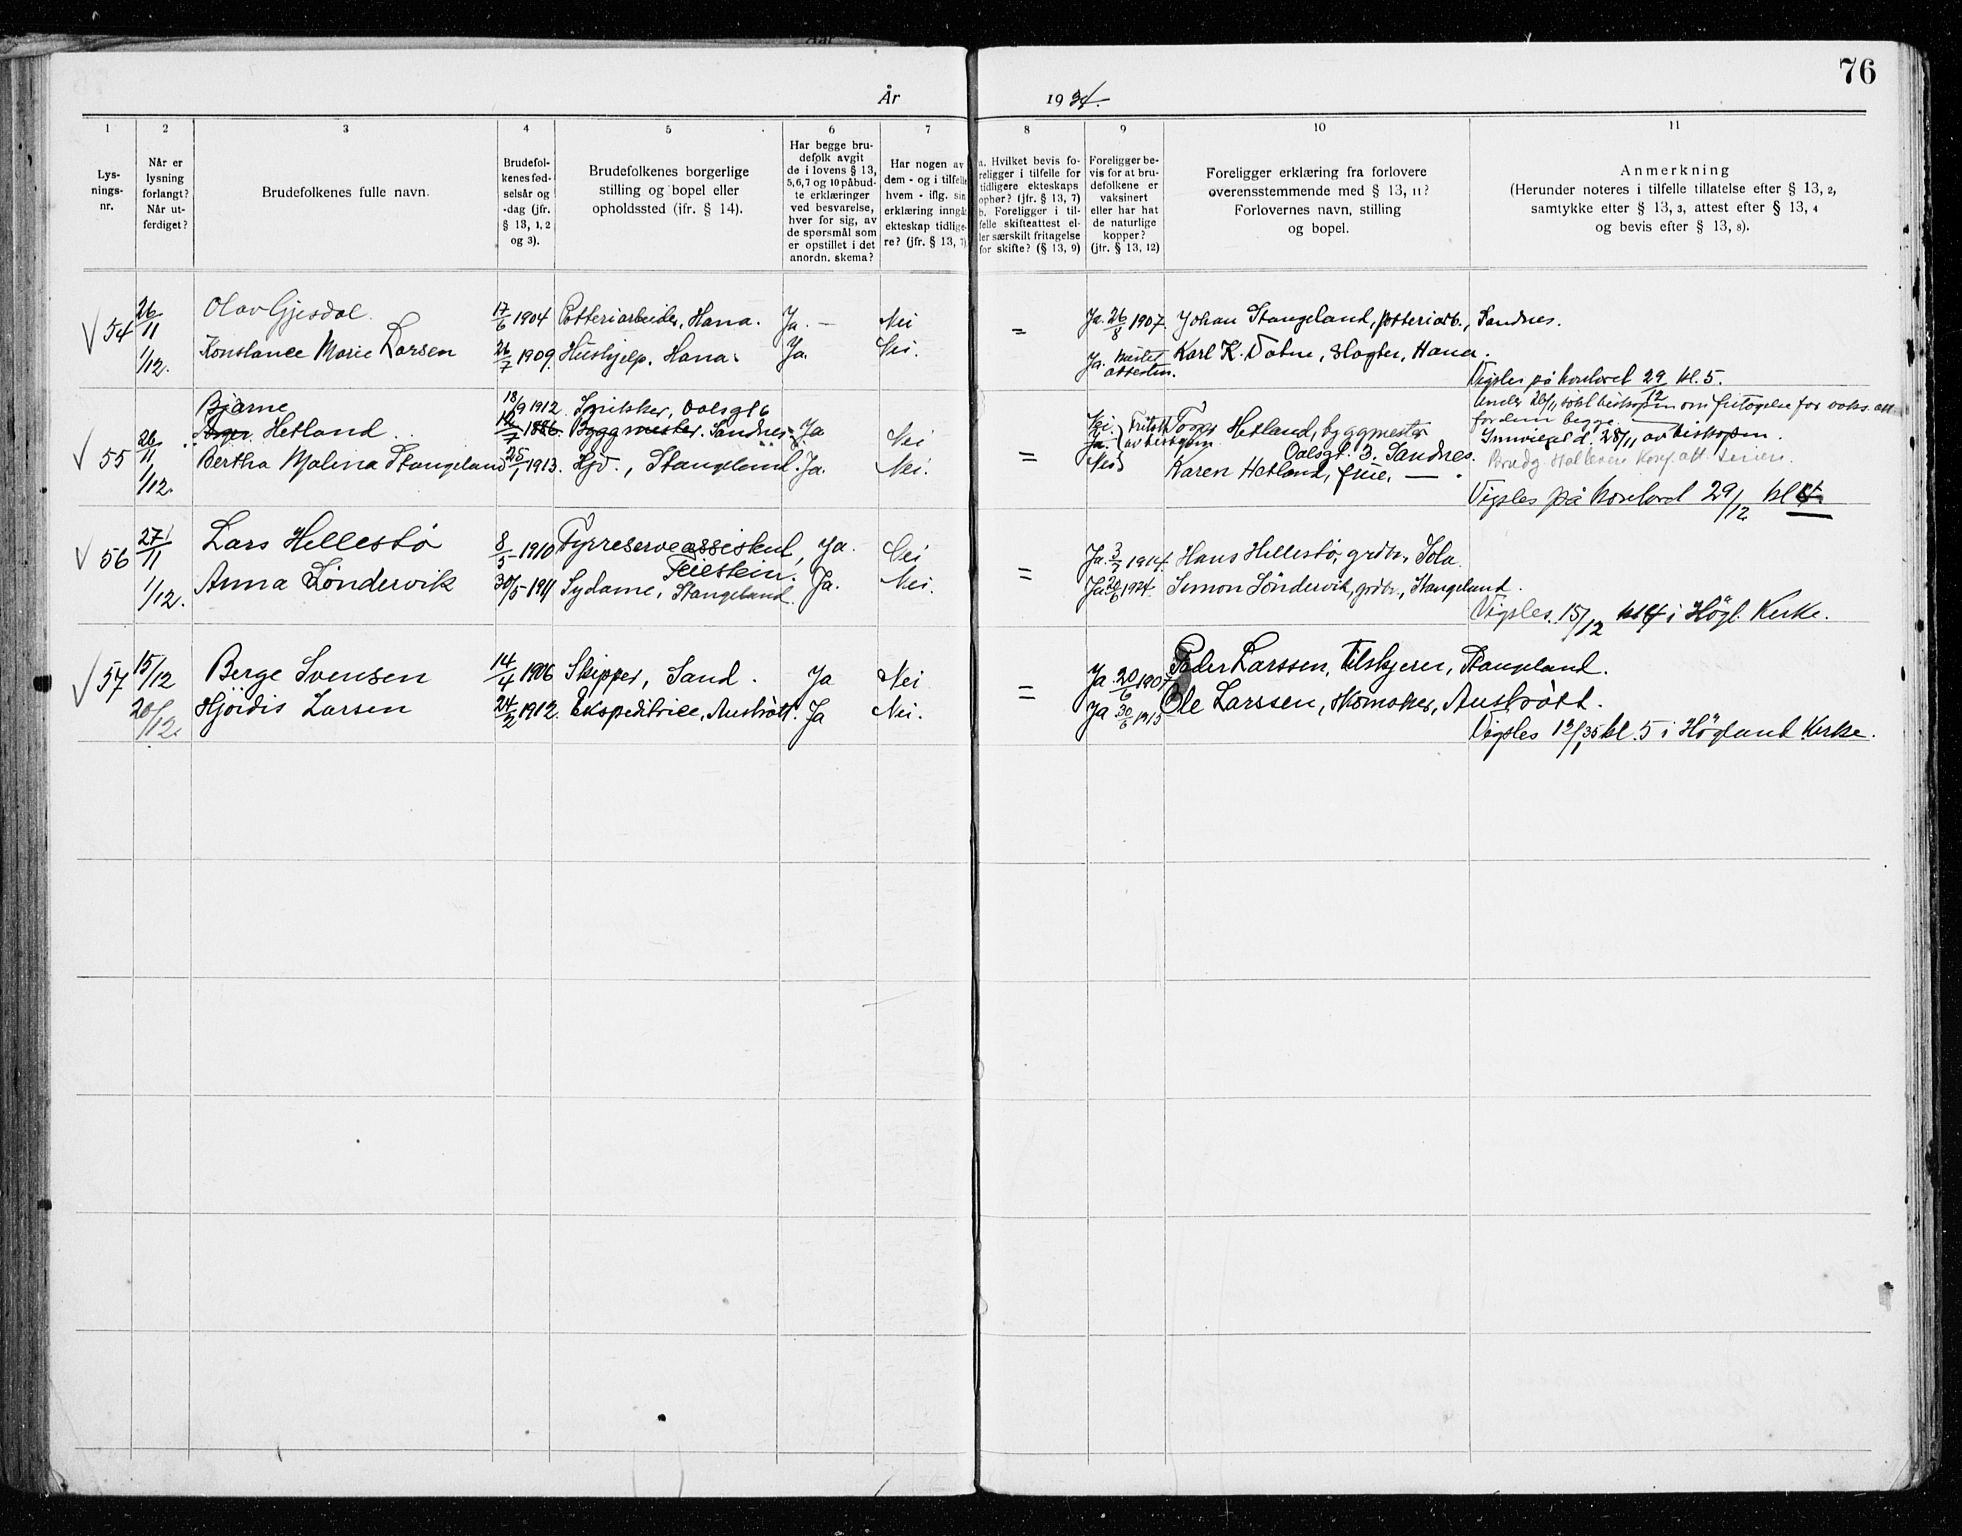 76
År 1934.
1 2 3 4 5 6 7 8 9 10 11
Lys-
nings-
nr.
Når er
lysning
forlangt?
Når ut-
ferdiget?
Brudefolkenes fulle navn.
Brudefol-
kenes fød-
selsår og
-dag (jfr.
§ 13, 1, 2
og 3).
Brudefolkenes borgerlige
stilling og bopel eller
opholdssted (jfr. § 14).
Har begge bru-
defolk avgit
de i lovens § 13,
5, 6, 7 og 10 påbud-
te erklæringer
ved besvarelse,
hver for sig, av
de spørsmål som
er opstillet i det
anordn. skema?
Har nogen av
dem - og i tilfelle
hvem - iflg. sin
erklæring inngåt
ekteskap tidlige-
re? (jfr. § 13, 7)
a. Hvilket bevis fo-
religger i tilfelle for
tidligere ekteskaps
ophør? (jfr. § 13, 7)
b. Foreligger i til-
felle skifteattest el-
ler særskilt fritagelse
for skifte? (§ 13, 9)
Foreligger be-
vis for at bru-
defolkene er
vaksinert
eller har hat
de naturlige
kopper?
(jfr. § 13, 12)
Foreligger erklæring fra forlovere
overensstemmende med § 13, 11?
Forlovernes navn, stilling
og bopel.
Anmerkning
(Herunder noteres i tilfelle tillatelse efter § 13, 2,
samtykke efter § 13, 3, attest efter § 13, 4
og bevis efter § 13, 8).
54 26/11 Olav Gjesdal. 17/6 1904 Potteriarbeider, Hana. Ja. – Nei = Ja. 26/8 1907. Johan Stangeland, potteriarb., Sandnes.
1/12. Konstance Marie Larsen 26/7 1909. Hushjelp, Hana. Ja. Nei. Ja. Mistet attesten. Karl K. Tatne, slagter, Hana.
Vigsles på kontoret 29/12 kl. 5.
Bjarne 18/9 1912. Snekker, Oalsgt 6
55 26/11 Hetland 1886. Byggmester. Sandnes. Ja Nei = Nei. Fritatt av biskopen Hetland, byggmester
Oalsgt. 3. Sandnes.
1/12. Bertha Malina Stangeland 25/1 1913. Hjv., Stangeland. Ja. Nei. Nei Karen Hetland, frue, — .
26/11 søkt biskopen om fritagelse for vaks. att.
for dem begge.
Innvilget d. 28/11 av biskopen.
Vigsles på kontoret 29/12 kl 4.
56 27/11 Lars Hellestö 8/5 1910 Fyrreserveassistent, Ja. Nei = Ja. 3/7 1914. Hans Hellestö, grdbr., Sola.
Feiestein.
1/12. Anna Söndervik 30/5 1911 Sydame, Stangeland. Ja. Nei. Ja. 20/6 1924. Simon Söndervik, grdbr., Stangeland.
Vigsles 15/12 kl 4 i Högl. Kirke.
57 15/12 Berge Svensen 14/4 1906 Skipper, Sand. Ja Nei = Ja 20/6 1907 Peder Larssen, Stangeland.
20/12. Hjördis Larsen 24/2 1912. Ekspeditrice, Austrått. Ja Nei. Ja 30/6 1915 Ole Larssen, skomaker, Austrått.
Vigsles 12/1 35 kl. 5 i Högland Kirke.